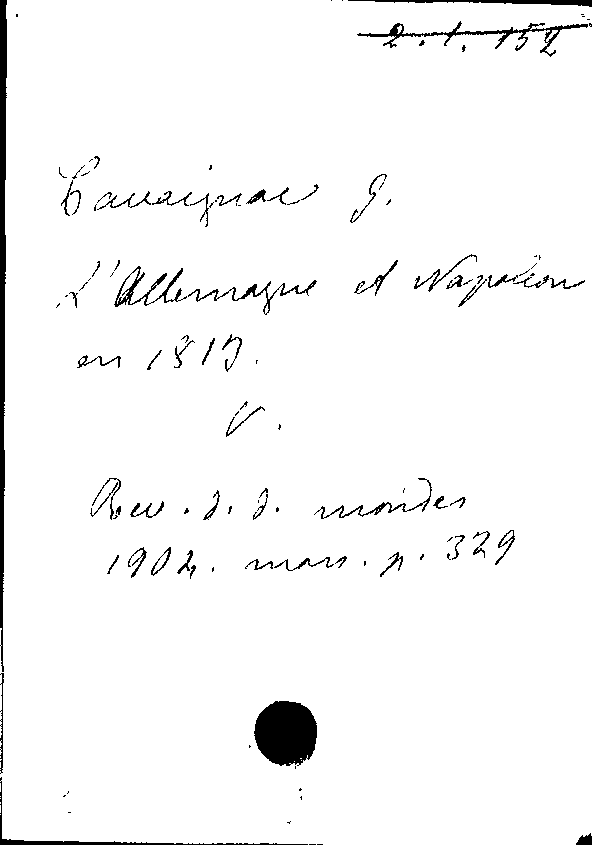 2.1.152
Cavaignac G.
L'Allemagne et Napoléon
en 1813.
V.
Rev. d. d. mondes
1902. mars. p. 329